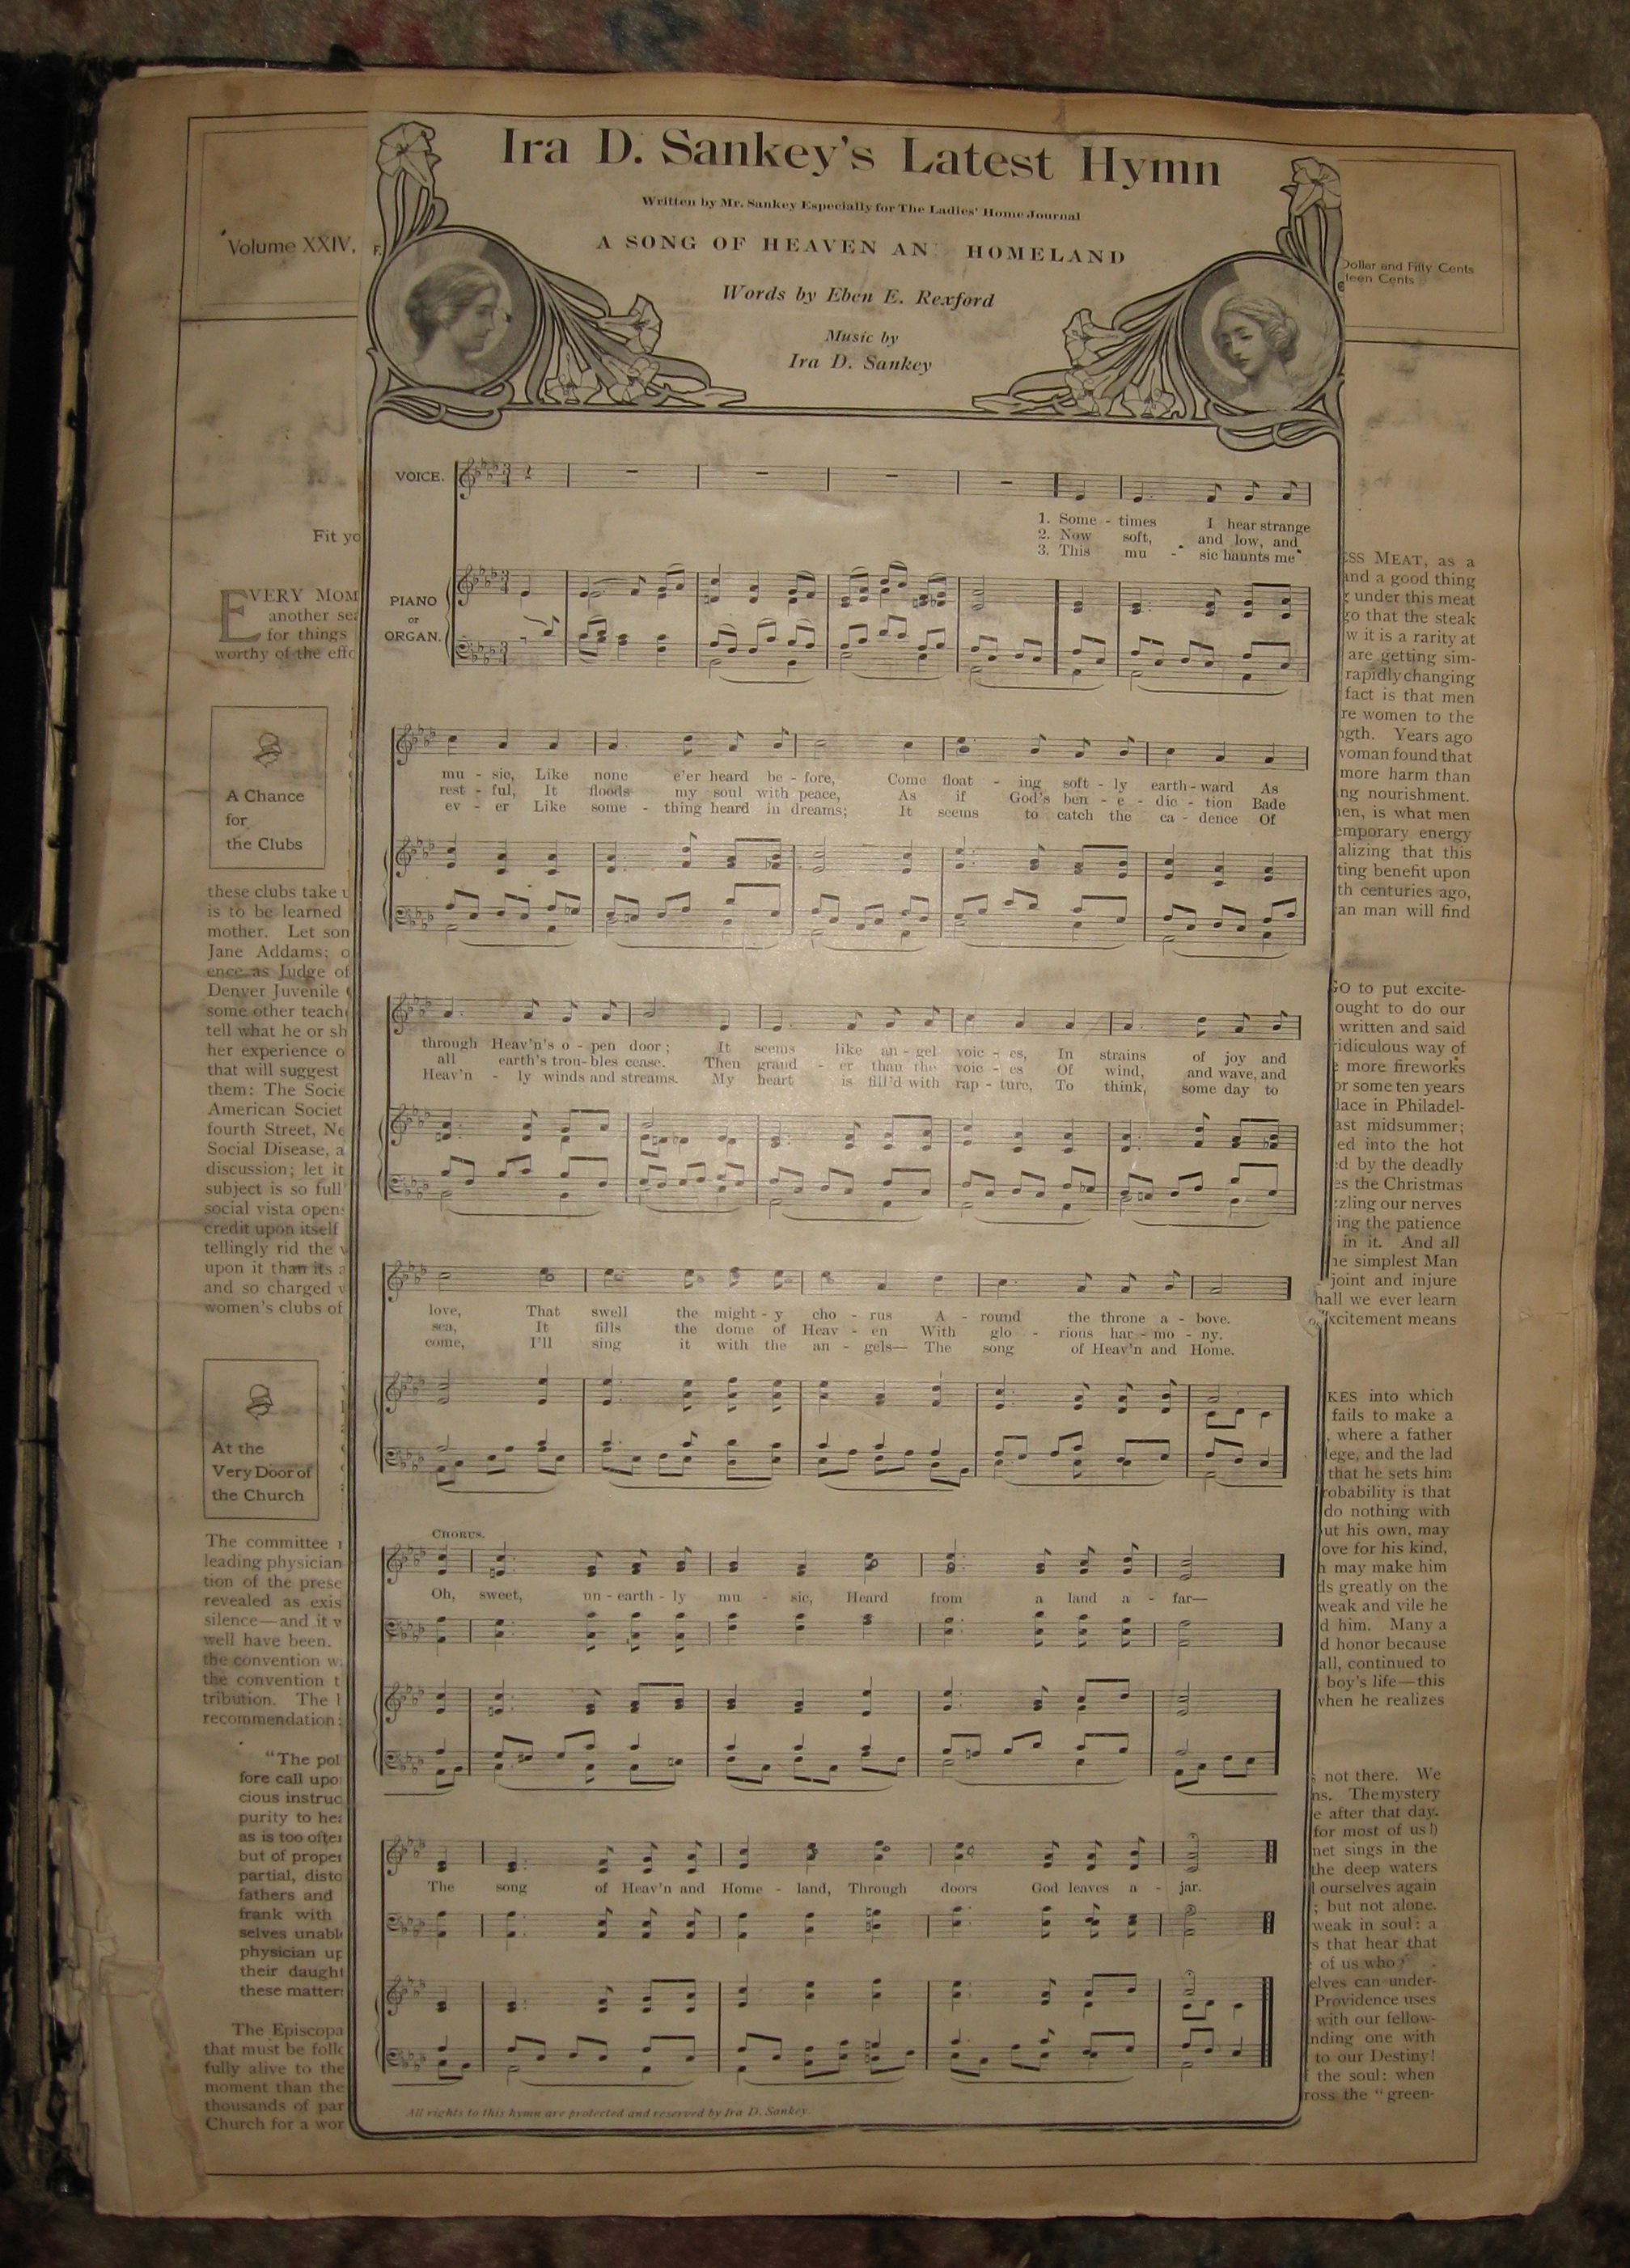 Ira D. Sankey's Latest Hymn
Written by Mr. Sankey Especially for The Ladies' Home Journal
A SONG OF HEAVEN AN HOMELAND
Words by Eben E. Rexford
Music by
Ira D. Sankey
VOICE.
1. Some - times I hear strange
2. Now soft, and low, and
3. This mu - sic haunts me
PIANO
or
ORGAN.
mu - sic, Like none e'er heard be - fore, Come float - ing soft - ly earth - ward As
rest - ful, It floods my soul with peace, As if God's ben - e - dic - tion Bade
ev - er Like some - thing heard in dreams; It seems to catch the ca - dence Of
through Heav'n's o - pen door; It seems like an - gel voic - es, In strains of joy and
all earth's trou - bles cease. Then grand - er than the voic - es Of wind, and wave, and
Heav'n - ly winds and streams. My heart is fill'd with rap - ture, To think, some day to
love, That swell the might - y cho - rus A - round the throne a - bove.
sea, It fills the dome of Heav - en With glo - rious har - mo - ny.
come, I'll sing it with the an - gels— The song of Heav'n and Home.
CHORUS.
Oh, sweet, un - earth - ly mu - sic, Heard from a land a - far—
The song of Heav'n and Home - land, Through doors God leaves a - jar.
All rights to this hymn are protected and reserved by Ira D. Sankey.
Volume XXIV,
Fit yo
EVERY MOM
another sea
for things
worthy of the effo
A Chance
for
the Clubs
these clubs take u
is to be learned
mother. Let son
Jane Addams; o
ence as Judge of
Denver Juvenile
some other teach
tell what he or sh
her experience o
that will suggest
them: The Socie
American Societ
fourth Street, Ne
Social Disease, a
discussion; let it
subject is so full
social vista open
credit upon itself
tellingly rid the w
upon it than its a
and so charged w
women's clubs of
At the
Very Door of
the Church
The committee
leading physician
tion of the prese
revealed as exis
silence—and it w
well have been.
the convention w
the convention t
tribution. The l
recommendation:
"The pol
fore call upo
cious instruc
purity to hea
as is too often
but of proper
partial, disto
fathers and
frank with
selves unabl
physician up
their daught
these matter
The Episcopa
that must be follo
fully alive to the
moment than the
thousands of par
Church for a wor
Dollar and Fifty Cents
teen Cents
ESS MEAT, as a
and a good thing
g under this meat
go that the steak
w it is a rarity at
are getting sim-
rapidly changing
fact is that men
re women to the
ngth. Years ago
woman found that
more harm than
ng nourishment.
en, is what men
emporary energy
alizing that this
ting benefit upon
th centuries ago,
an man will find
GO to put excite-
ought to do our
written and said
ridiculous way of
more fireworks
or some ten years
lace in Philadel-
ast midsummer;
ed into the hot
d by the deadly
es the Christmas
zzling our nerves
ing the patience
in it. And all
he simplest Man
joint and injure
hall we ever learn
excitement means
KES into which
fails to make a
, where a father
lege, and the lad
that he sets him
robability is that
do nothing with
ut his own, may
ove for his kind,
may make him
ds greatly on the
weak and vile he
d him. Many a
d honor because
all, continued to
boy's life—this
when he realizes
not there. We
ns. The mystery
e after that day.
for most of us!)
net sings in the
the deep waters
l ourselves again
; but not alone.
weak in soul: a
s that hear that
of us who
elves can under-
Providence uses
with our fellow-
nding one with
to our Destiny!
f the soul: when
ross the "green-